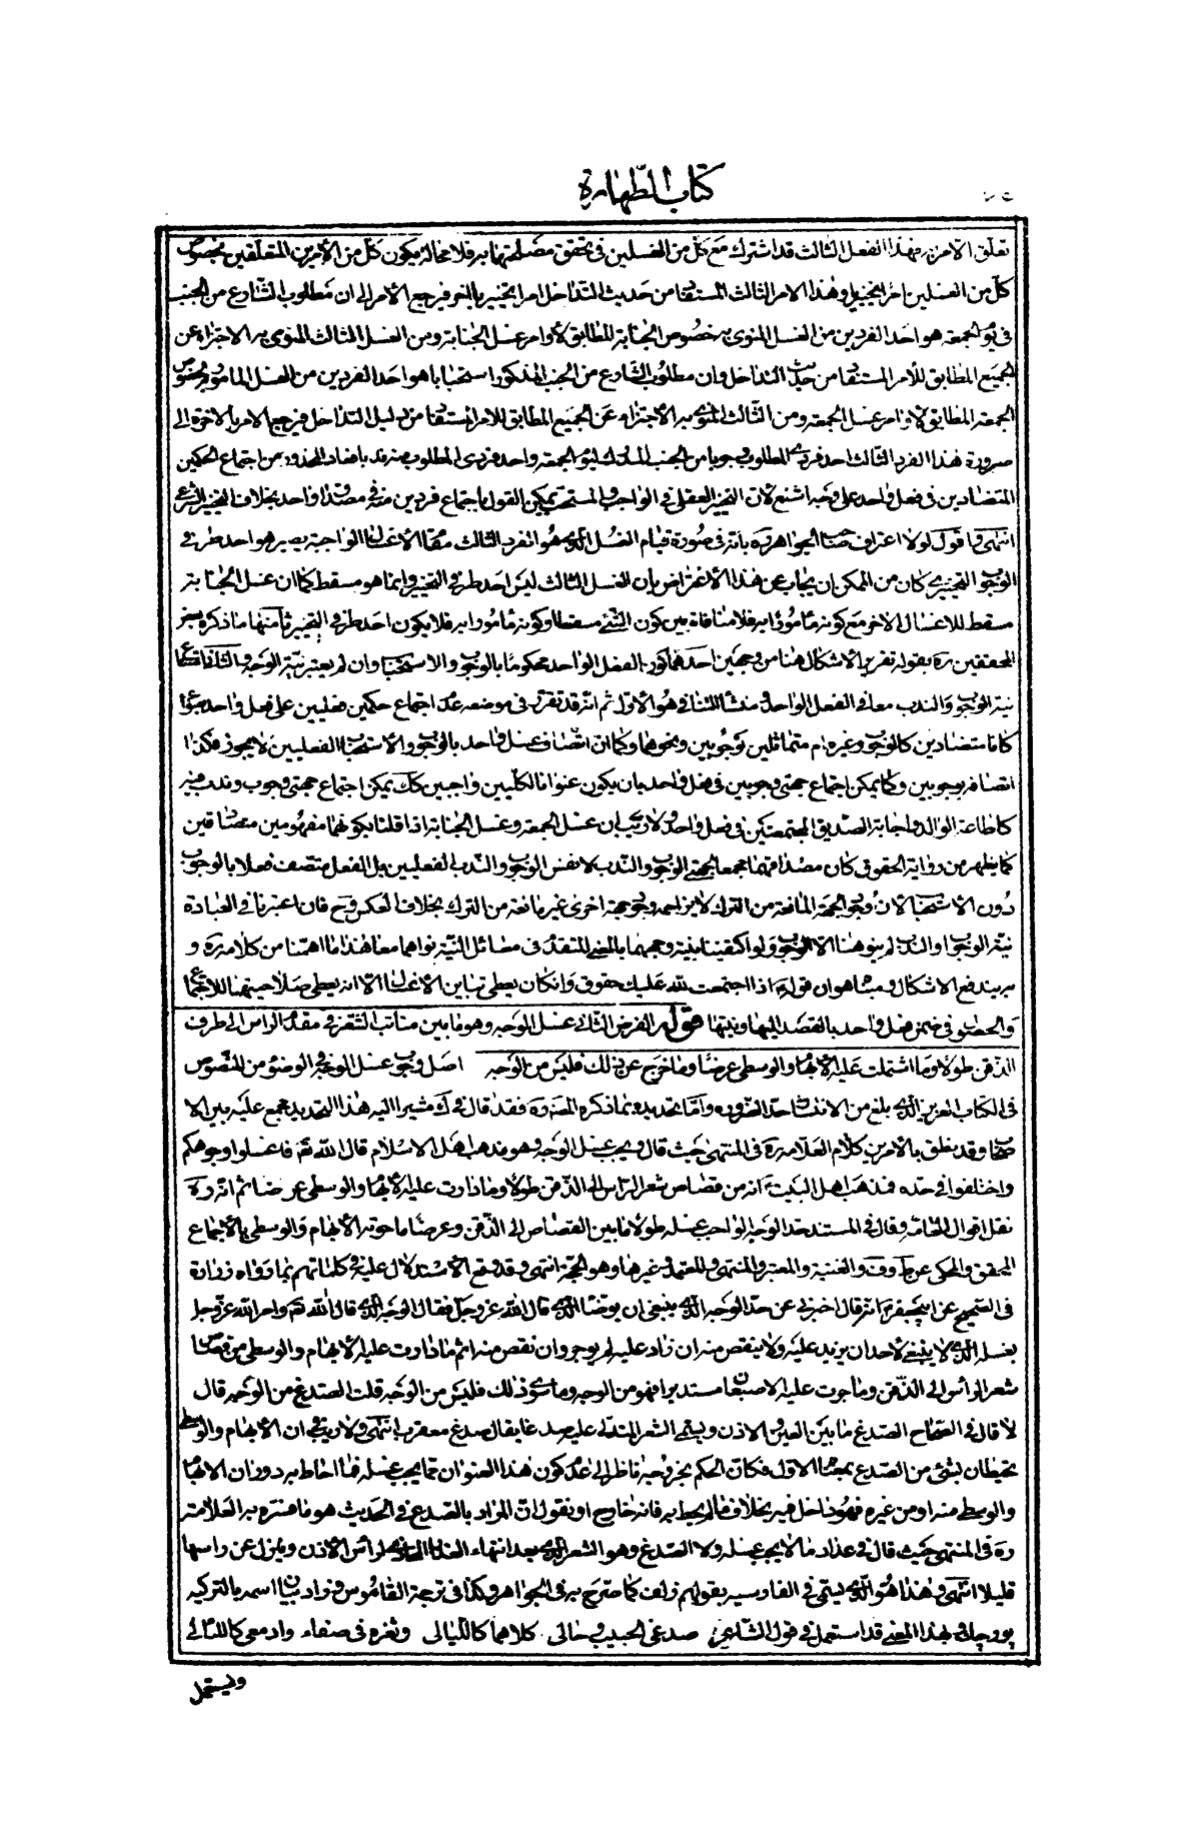 كتاب الطهارة
تعلق الامرين بهذا الفعل الثالث قد اشترك مع كل من الغسلين في تحقق مصلحتهما به فلا محالة يكون كل من الأمرين المتعلقين بخصوص
كل من الغسلين امرا تخييريا وهذا الامر الثالث المستفاد من حديث التداخل امرا تخييريا بالنحو فيرجع الأمر الى ان مطلوب الشارع من الجنب
في يوم الجمعة هو احد الفردين من الغسل المنوي به خصوص الجنابة المطابق لأوامر غسل الجنابة ومن الغسل الثالث المنوي به الاجتزاء عن
الجميع المطابق للأمر المستفاد من حديث التداخل وان مطلوب الشارع من الجنب المذكور استحبابا هو احد الفردين من الغسل المأمور بخصوص
الجمعة المطابق لأوامر غسل الجمعة ومن الثالث المنوي به الاجتزاء عن الجميع المطابق للامر المستفاد من دليل التداخل فيرجع الامر بالاخرة الى
صيرورة هذا الفرد الثالث احد فردي المطلوب وجوبا من الجنب المدرك ليوم الجمعة واحد فردي المطلوب منه ندبا فعاد المحذور من اجتماع الحكمين
المتضادين في فعل واحد على وجه اشنع لان التخيير العقلي في الواجب والمستحب يمكن القول باجتماع فردين منه في مصداق واحد بخلاف التخيير الشرعي
انتهى واقول لولا اعتراف صاحب الجواهر ره بانه في صورة قيام الغسل الذي هو الفرد الثالث مقام الأغسال الواجبة يصير هو احد طرفي
الوجوب التخييري كان من الممكن ان يجاب عن هذا الاعتراض بان الغسل الثالث ليس احد طرفي التخيير وانما هو مسقط كما ان غسل الجنابة
مسقط للاغسال الاخر مع كونه مأمورا به فلا منافاة بين كون الشئ مسقطا وكونه مأمورا به فلا يكون احد طرفي التخيير ثامنها ما ذكره بعض
المحققين ره بقوله تقرير الاشكال هنا من وجهين احدهما كون الفعل الواحد محكوما بالوجوب والاستحباب وان لم يعتبر نية الوجه والثاني اجتماع
نية الوجوب والندب معا في الفعل الواحد ومنشأ الثاني هو الأول ثم انه قد تقرر في موضعه عدم اجتماع حكمين فعليين على فعل واحد سواء
كانا متضادين كالوجوب وغيره ام متماثلين كوجوبين ونحوهما وكما ان اتصاف غسل واحد بالوجوب والاستحباب الفعليين لا يجوز فكذا
اتصافه بوجوبين وكما يمكن اجتماع جهتي وجوبين في فعل واحد بان يكون عنوانا لكليين واجبين كك يمكن اجتماع جهتي وجوب وندب فيه
كاطاعة الوالد واجابة الصديق المجتمعتين في فعل واحد ولا ريب ان غسل الجمعة وغسل الجنابة اذا قلنا بكونهما مفهومين متصادقين
كما يظهر من رواية الحقوق كان مصداقهما مجمعا لجهتي الوجوب والندب لا نفس الوجوب والندب الفعليين بل الفعل متصف فعلا بالوجوب
دون الاستحباب لان وجود الجهة المانعة من الترك لا يزاحمه وجود جهة اخرى غير مانعة من الترك بخلاف العكس وح فان اعتبرنا في العبادة
نية الوجوب او الندب لم ينو هنا الا الوجوب ولو اكتفينا بنية وجههما بالمعنى المتقدم في مسائل النية نواهما معا هذا ما اهمنا من كلامه ره و
به يندفع الاشكال ومبناه هو ان قوله اذا اجتمعت لله عليك حقوق وان كان يعطي تباين الأغسال الا انه يعطي صلاحيتها للاجتماع
والحصول في ضمن فعل واحد بالقصد اليها ونيتها قوله الفرض الثاني غسل الوجه وهو ما بين منابت الشعر في مقدم الراس الى طرف
الذقن طولا وما اشتملت عليه الابهام والوسطى عرضا وما خرج عن ذلك فليس من الوجه اصل وجوب غسل الوجه في الوضوء من المنصوص
في الكتاب العزيز الذي بلغ من الانكشاف حد الضرورة واما تحديده بما ذكره المصنف ره فقد قال في ك مشيرا اليه هذا التحديد مجمع عليه بين الا
صحاب وقد نطق بالامرين كلام العلامة ره في المنتهى حيث قال ويجب غسل الوجه وهو مذهب اهل الاسلام قال الله تع فاغسلوا وجوهكم
واختلفوا في حده فمذهب اهل البيت ع انه من قصاص شعر الراس الى الذقن طولا وما دارت عليه الابهام والوسطى عرضا ثم انه ره
نقل اقوال العامة وقال في المستند حد الوجه الواجب غسله طولا ما بين القصاص الى الذقن وعرضا ما حوته الابهام والوسطى بالاجماع
المحقق والمحكي عن ط وف والغنية والمعتبر والمنتهى والمعتمد وغيرها وهو الحجة انتهى وقد وقع الاستدلال عليه في كلماتهم بما رواه زرارة
في الصحيح عن ابي جعفر ع انه قال اخبرني عن حد الوجه الذي ينبغي ان يوضأ الذي قال الله عز وجل فقال الوجه الذي قال الله تع وامر الله عز وجل
بغسله الذي لا ينبغي لاحد ان يزيد عليه ولا ينقص منه ان زاد عليه لم يوجر وان نقص منه اثم ما دارت عليه الابهام والوسطى من قصاص
شعر الراس الى الذقن وما جرت عليه الاصبعان مستديرا فهو من الوجه وما سوى ذلك فليس من الوجه قلت الصدغ من الوجه قال
لا قال في الصحاح الصدغ ما بين العين والاذن ويسمى الشعر المتدلي عليه صدغا يقال صدغ معقرب انتهى ولا ريب في ان الابهام والوسطى
تحيطان بشئ من الصدغ بمعناه الاول فكان الحكم بخروجه ناظر الى عدم كون هذا العنوان مما يجب غسله فما احاط به دوران الابهام
والوسطى منه او من غيره فهو داخل فيه بخلاف ما لم يحط به فانه خارج او نقول ان المراد بالصدغ في الحديث هو ما فسره به العلامة
ره في المنتهى حيث قال في عداد ما لا يجب غسله ولا الصدغ وهو الشعر الذي بعد انتهاء العذار المحاذي لراس الأذن وينزل عن راسها
قليلا انتهى وهذا هو الذي يسمى في الفارسية بقولهم زلف كما صرح به في الجواهر وكذا في ترجمة القاموس وزاد بيان اسمه بالتركية
بورچك وبهذا المعنى قد استعمل في قول الشاعر صدغ الحبيب وحالي كلاهما كالليالي وثغره في صفاء وادمعي كاللئالي
ويستعمل